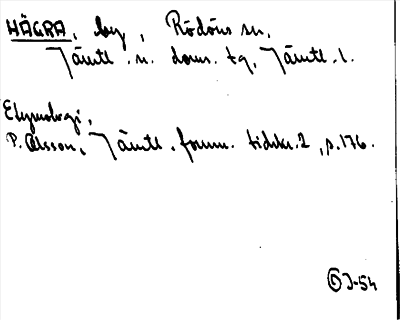 HÄGRA, by, Rödöns sn,
Jämtl. n. doms. tg, Jämtl. l.
Etymologi,
P. Olsson, Jämtl. fornm. tidskr. 2, s. 176.
J-54